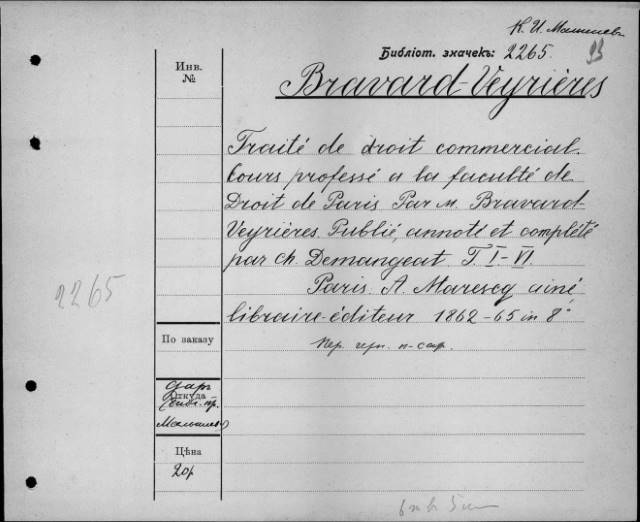 К. И. Малышев
Библіот. значекъ: 2265.
Инв.
№
Bravard-Veyrières
Traité de droit commercial.
Cours professé a la faculté de
Droit de Paris Par M. Bravard-
Veyrières. Publié, annoté et complété
par Ch. Demangeat T. I-VI.
Paris. A. Marescq ainé,
libraire-éditeur 1862-65 in 8°
2265
По заказу
Откуда
даръ
Малышев
Цѣна
20р